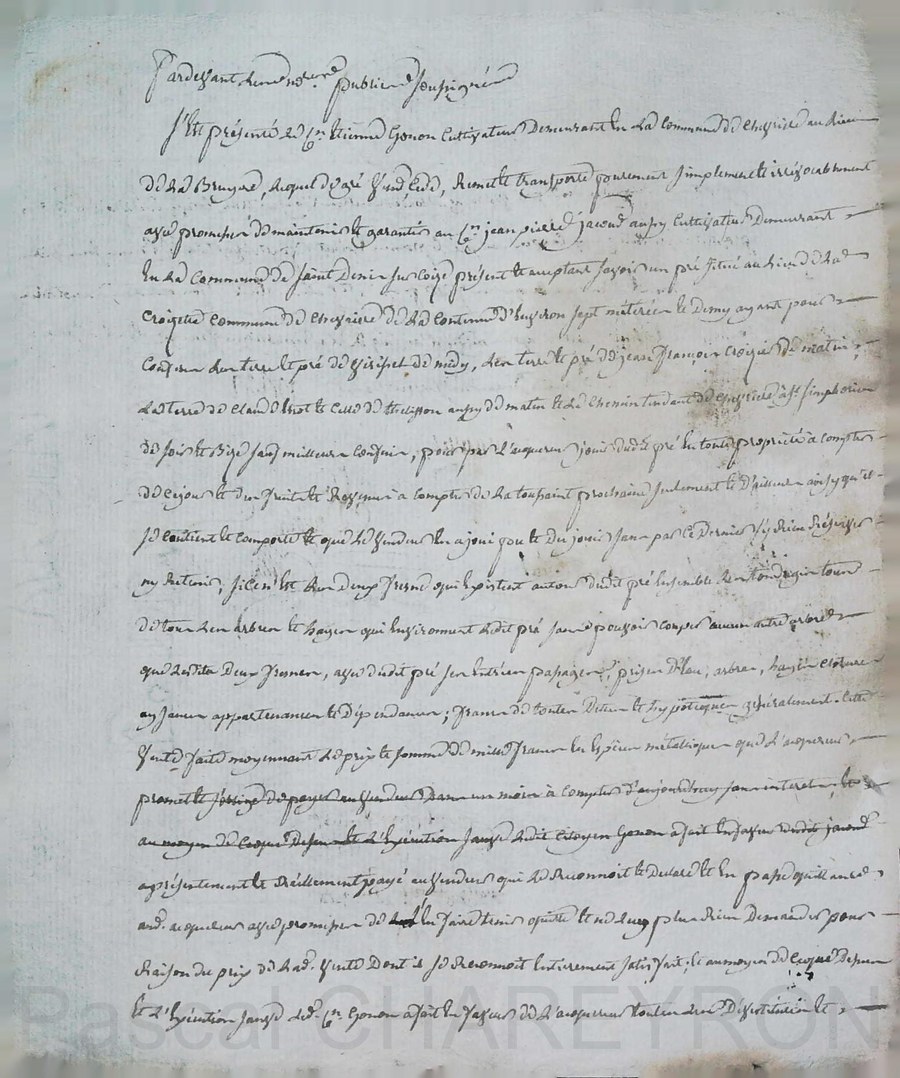 Pardevant les not.res publics soussignés
S'est présenté le C.en Etienne Gonon Cultivateur demeurant en la commune de chevrière au lieu
de la Bruyere, lequel de gré vend, cede, remet et transporte purement simplement et irrévocablement
avec promesse de maintenir et garantir au C.en jean pierre jacoud aussy cultivateur demeurant
en la commune de saint Denis sur coize présent et acceptant savoir un pré situé au lieu de la
croizette commune de chevriere de la contenue d'environ sept métérées et demy ayant pour
confins les terre et pré de de midy, les terre et pré de jean françois croizier de matin,
la terre de claude et celle de aussy de matin et le chemin tendant de chevriere à s.t simphorien
de soir et bize sauf meilleurs confins, pour par l'acquereur jouir dudit pré en toute propriété à compter
de ce jour et des fruits et revenus à compter de la toussaint prochaine seulement et d'ailleurs ainsy qu'il
se contient et comporte et que le vendeur en a joui pu et du jouir sans par ce dernier s'y rien réserver
ny retenir, si ce n'est les deux fresnes qui existent autour dudit pré ensemble
de tous les arbres et hayes qui environnent ledit pré sans pouvoir couper aucun autre arbre
que lesdits deux fresnes, avec dudit pré ses entrées passages, prises d'eau, arbres, hayes clotures
aysances appartenances et dépendances; franc de toutes dettes et hypoteques généralement. Cette
vente faite moyennant le prix et somme de mille francs en espèces métalliques que l'acquereur
promet et s'oblige de payer au vendeur dans un mois à compter d'aujourd'huy sans interet, et
au moyen de ce que dessus et l'exécution d'icelle ledit citoyen Gonon a fait en faveur dudit jacoud
a présentement et réellement payé au vendeur qui le reconnoit et declare et en passe quittance
aud. acquereur avec promesse de l'en faire tenir quitte et ne luy plus rien demander pour
raison du prix de lad. vente dont il se reconnoit entierement satisfait; et au moyen de ce que dessus
et l'exécution led. C.en Gonon a fait en faveur de l'acquereur toutes les devestitures et